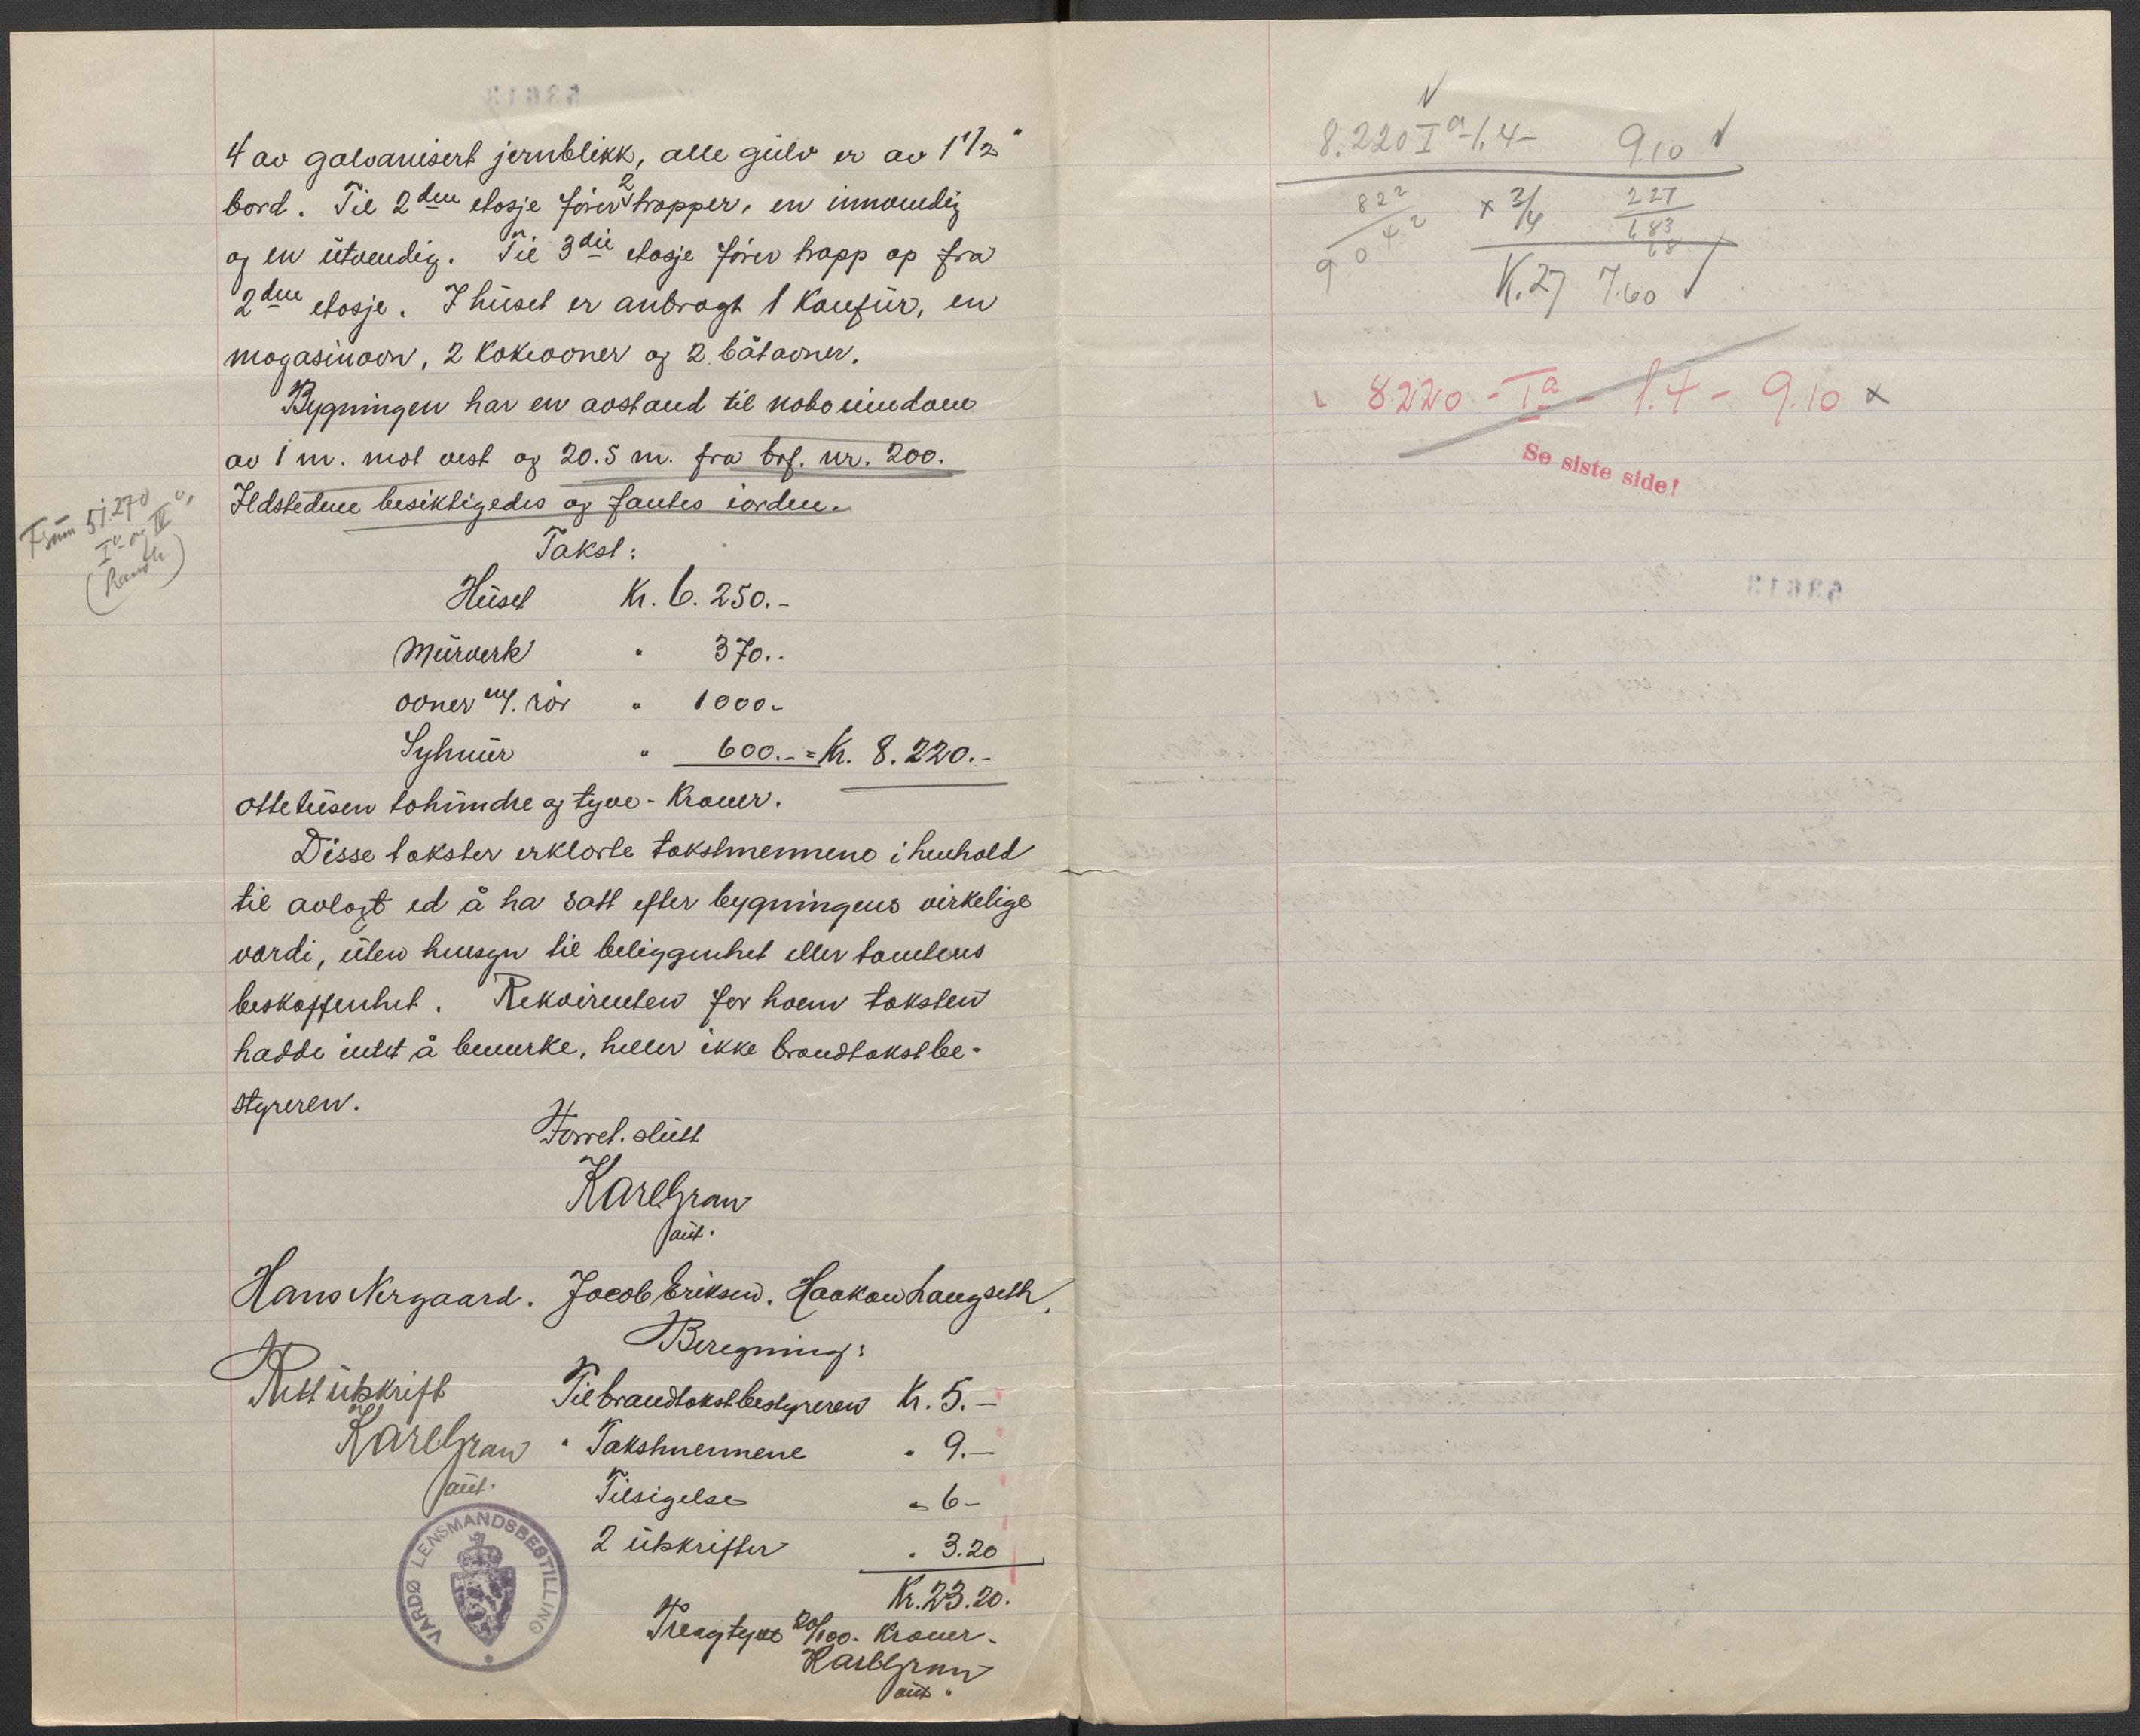 4 av galvanisert jernblikk, alle gulv er av 1 1/2"
bord. Til 2den etasje fører 2 trapper, en innvendig
og en utvendig. Til 3die etasje fører trapp op fra
2den etasje. I huset er anbragt 1 Komfur, en
magasinovn, 2 kokeovner og 2 båtovner.
Bygningen har en avstand til naboeiendom
av 1 m. mot vest og 20.5 m. fra brf. nr. 200.
Ildstedene besiktigedes og fantes iorden.
Takst:
Huset Kr. 6.250.-
Murverk " 370.-
ovner m/. rør " 1000.-
Sylmur " 600.- = Kr. 8.220.-
ottetusen tohundre og tyve - Kroner.
Disse takster erklærte takstmennene i henhold
til avlagt ed å ha satt efter bygningens virkelige
værdi, uten hensyn til beliggenhet eller tomtens
beskaffenhet. Rekvirenten for hvem taksten
hadde intet å bemerke, heller ikke brandtakstbe-
styreren.
Forret. slutt
Karl Gran
aut.
Hans Nergaard. Jacob Eriksen. Haakon Langseth.
Beregning:
Rett utskrift Til brandtakstbestyreren Kr. 5.-
Karl Gran " Takstmennene " 9.-
aut. Tilsigelse " 6-
2 utskrifter " 3.20
Kr. 23.20.
Treogtyve 20/100. Kroner.
Karl Gran
aut.
VARDØ LENSMANDSBESTILLING
51270
53613
8.220 Ia - 1.4 - 9.10
822 x 3/4 227
9 0 4 2 683
68
K.27 7.60
8220 - Ia - 1.4 - 9.10 x
Se siste side!
53613